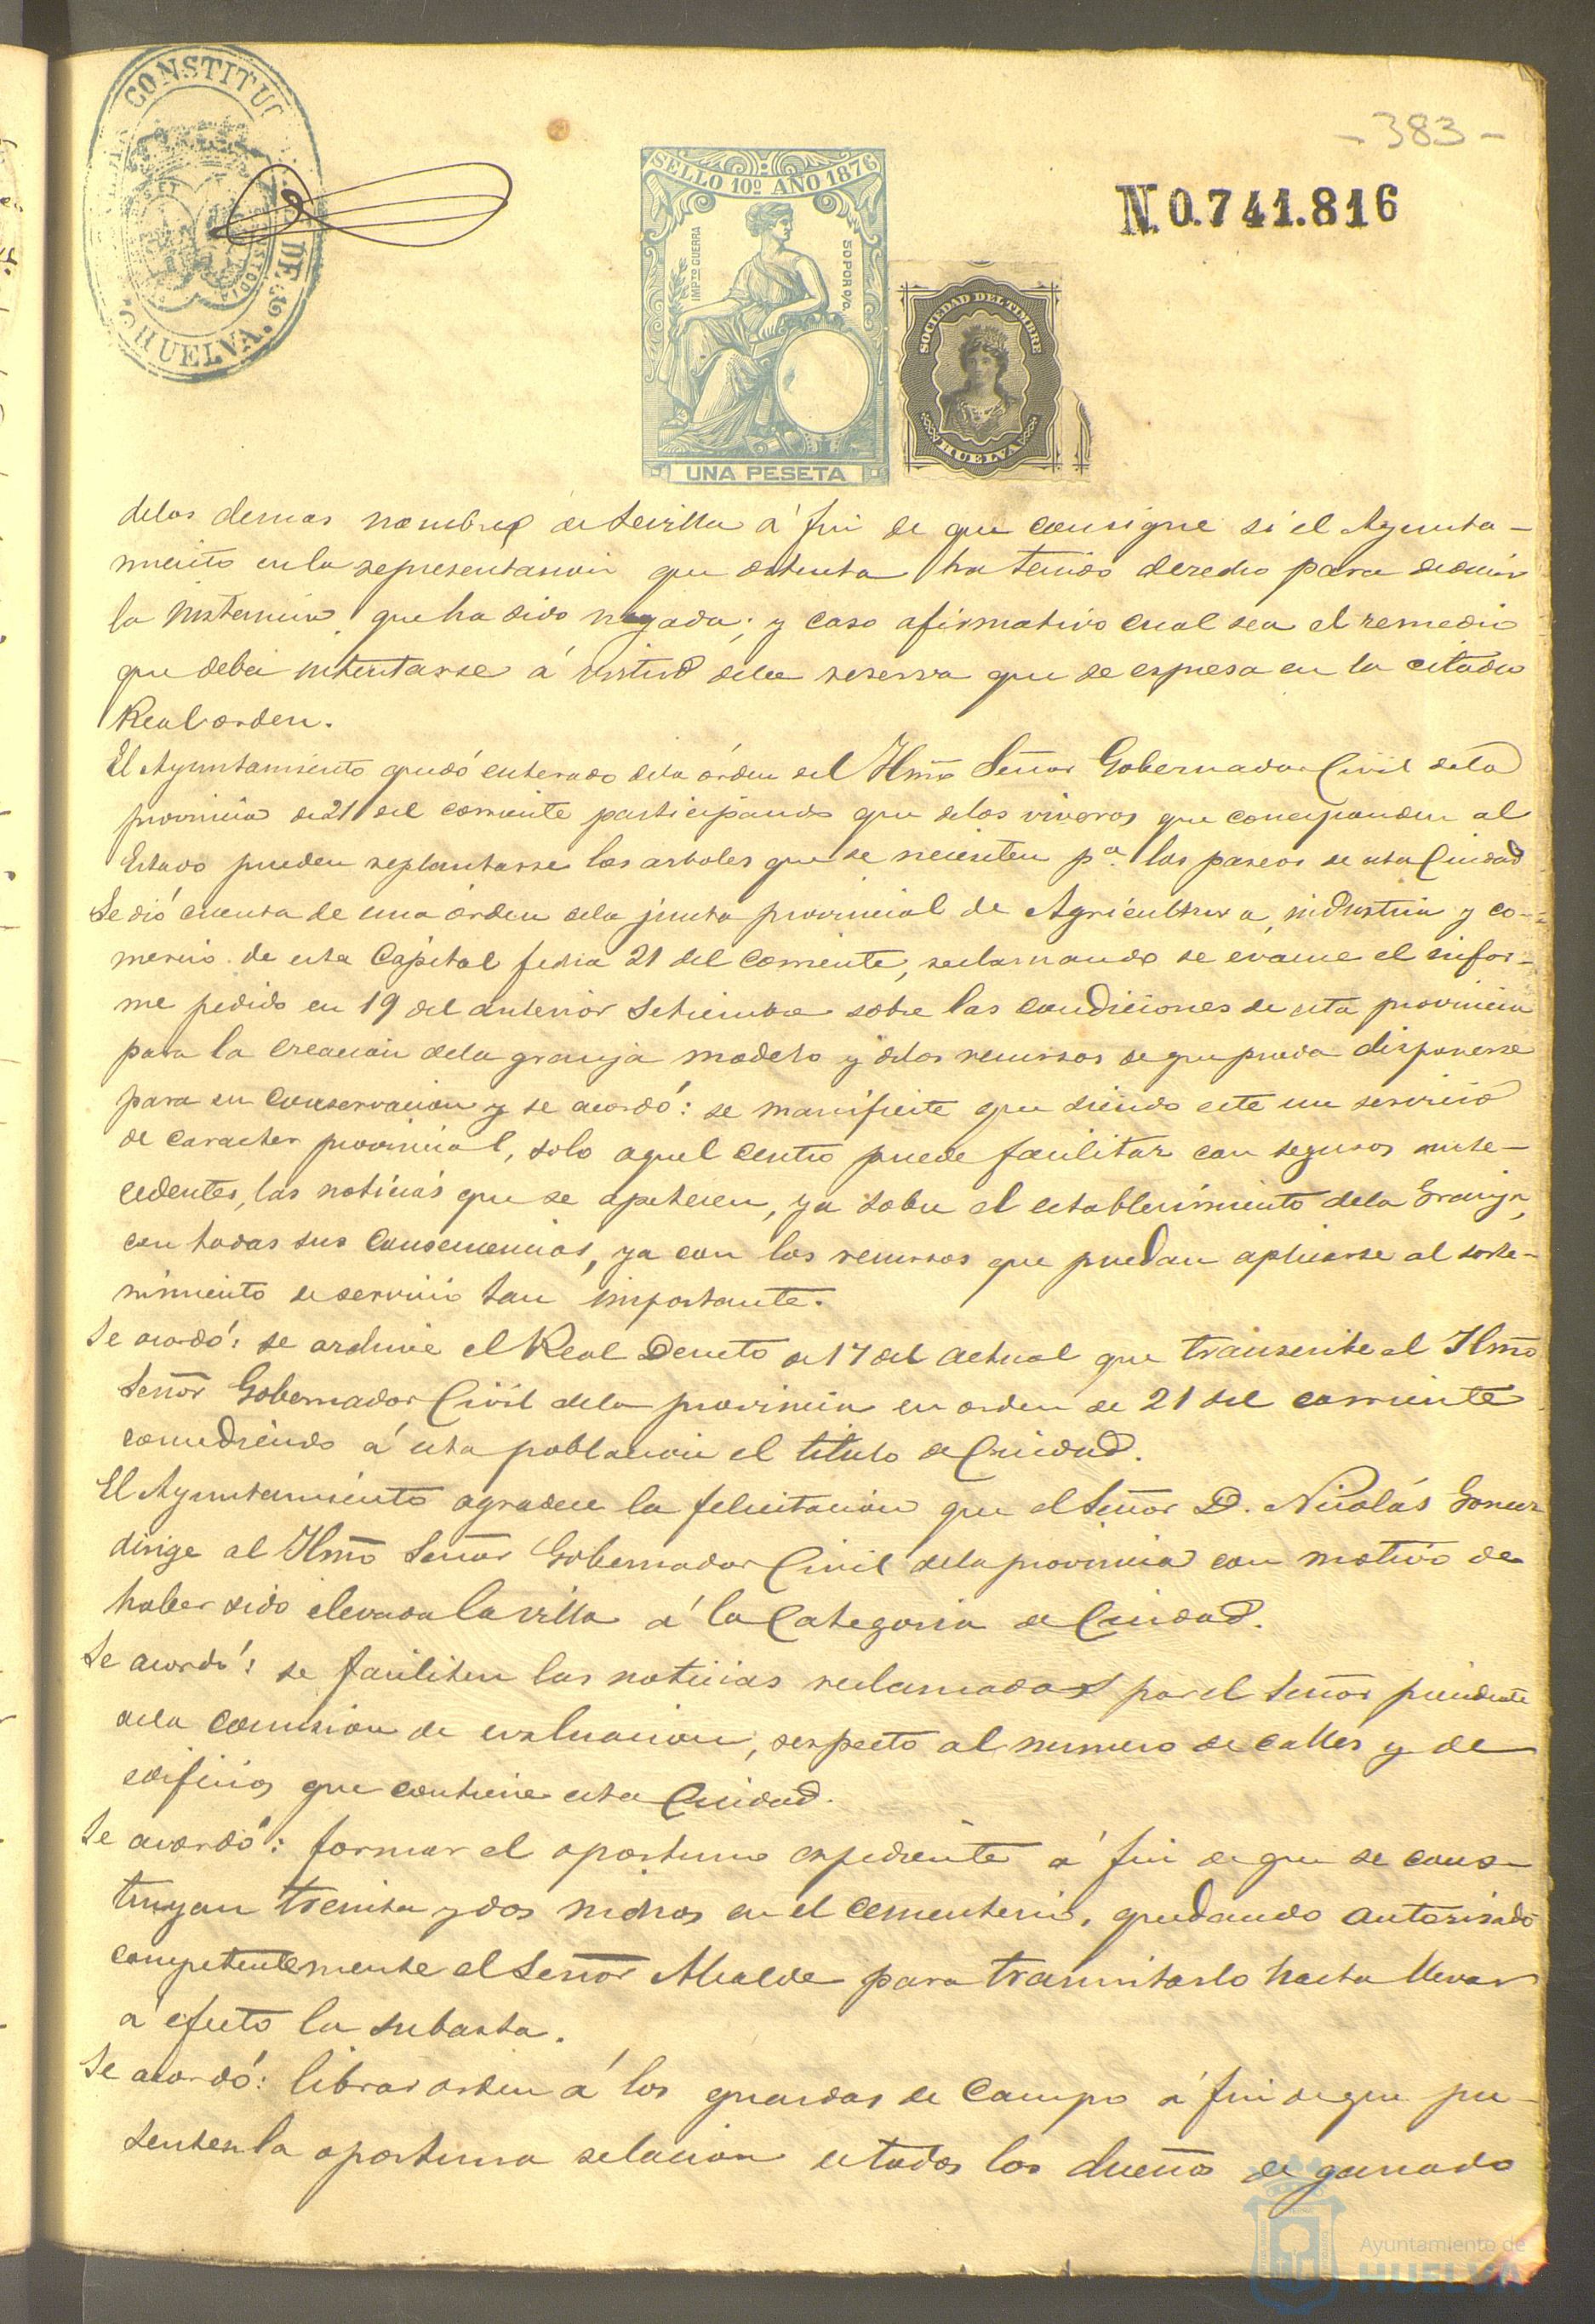 CONSTITUC
DE
HUELVA.
- 383 -
SELLO 10º AÑO 1876
IMPTO GUERRA
50 POR º/o.
UNA PESETA
N. 0.741.816
SOCIEDAD DEL TIMBRE
HUELVA
delos demas nombres de Sevilla á fin de que consigne si el Ayunta-
miento en la representacion que ostenta ha tenido derecho para deducir
la instancia que ha sido negada; y caso afirmativo cual sea el remedio
que deba intentarse á virtud dela reserva que se espresa en la citada
Real orden.
El Ayuntamiento quedó enterado dela órden del Ilmo Señor Gobernador Civil dela
provincia de 21 del corriente participando que delos viveros que corresponden al
Estado pueden replantarse los arboles que se necesiten pª. los paseos de esta Ciudad
Se dió cuenta de una órden dela junta provincial de Agricultura, industria y co-
mercio de esta Capital fecha 21 del corriente, reclamando se evacue el infor-
me pedido en 19 del anterior Setiembre sobre las condiciones de esta provincia
para la creacion dela granja modelo y delos recursos de que pueda disponerse
para su conservacion y se acordó: se manifieste que siendo este un servicio
de caracter provincial, solo aquel centro puede facilitar con seguros ante-
cedentes, las noticias que se apetecen, ya sobre el establecimiento dela Granja,
con todas sus consecuencias, ya con los recursos que puedan aplicarse al soste-
nimiento de servicio tan importante.
Se acordó: se archive el Real Decreto de 17 del actual que transcribe el Ilmo
Señor Gobernador Civil dela provincia en orden de 21 del corriente
concediendo á esta poblacion el titulo de Ciudad.
El Ayuntamiento agradece la felicitacion que el Señor D. Nicolás Gomez
dirige al Ilmo Señor Gobernador Civil dela provincia con motivo de
haber sido elevada la villa á la Categoria de Ciudad.
Se acordó: se faciliten las noticias reclamadas por el Señor presidente
dela comision de evaluacion, respecto al numero de calles y de
edificios que contiene esta Ciudad.
Se acordó: formar el oportuno espediente á fin de que se cons-
truyan treinta y dos nichos en el cementerio, quedando autorisado
competentemente el Señor Alcalde para tramitarlo hasta llevar
á efecto la subasta.
Se acordó: librar orden á los guardas de campo á fin de que pre-
senten la oportuna relacion de todos los dueños de ganado
Ayuntamiento de
HUELVA